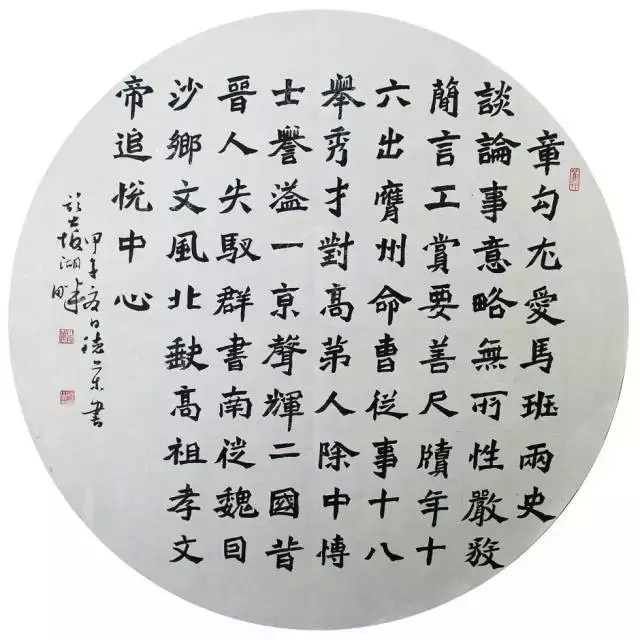 章勾尤愛馬班兩史
談論事意略無所性嚴發
簡言工賞要善尺牘年十
六出膺州命曹從事十八
舉秀才對高第人除中博
士譽溢一京聲輝二國昔
晉人失馭群書南徙魏因
沙鄉文風北缺高祖孝文
帝追悅中心
甲午夏日書
湖畔